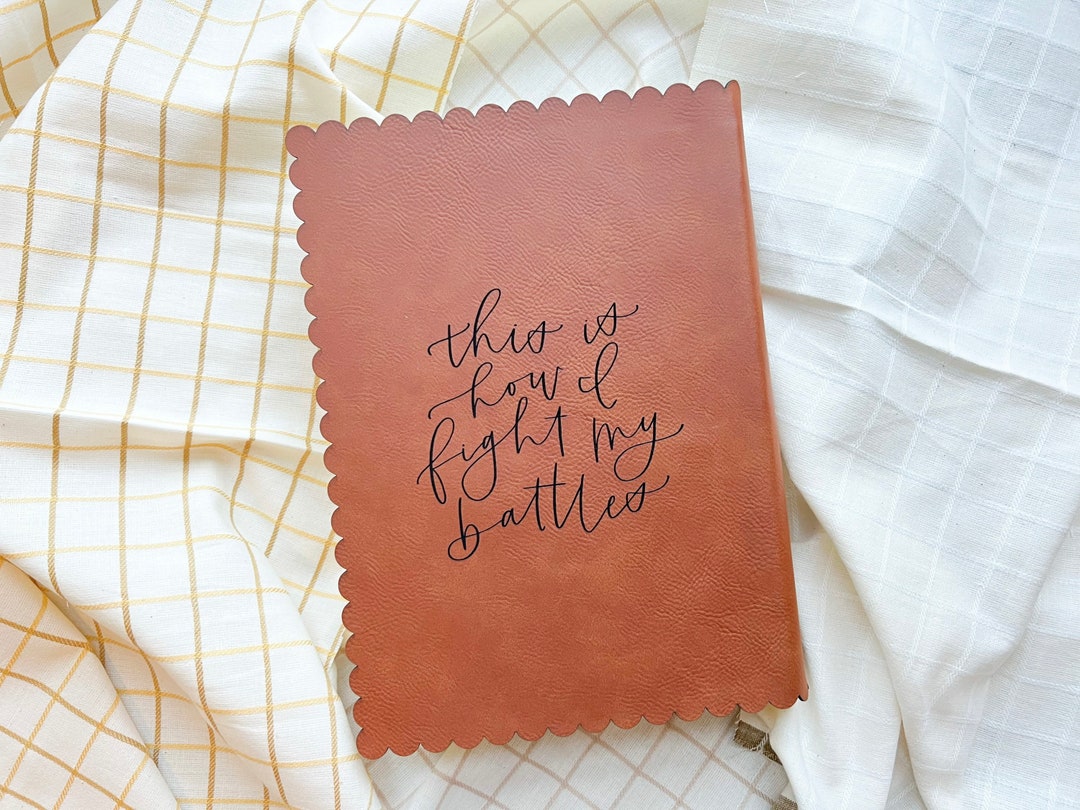 this is
how I
fight my
battles